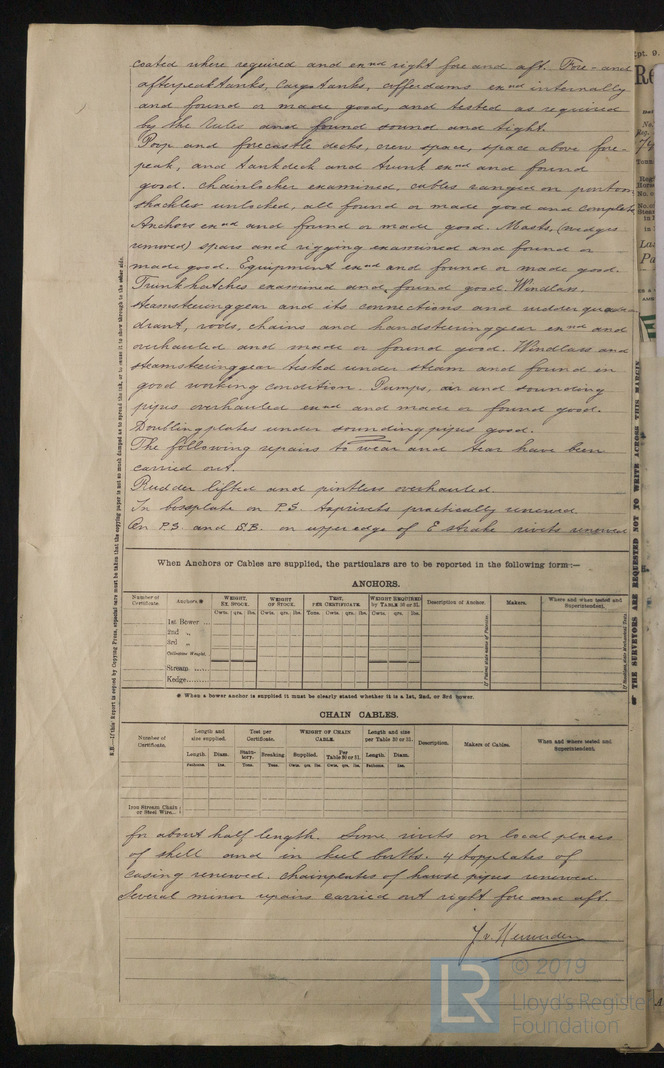 coated where required and exnd right fore and aft. Fore- and
afterpeaktanks, Cargotanks, cofferdams exnd internally
and found or made good, and tested as required
by the Rules and found sound and tight.
Poop and forecastle decks, crew space, space above fore-
peak, and tankdeck and trunk exnd and found
good. Chainlocker examined, cables ranged on pontoon,
shackles unlocked, all found or made good and complete
Anchors exnd and found or made good. Masts, (wedges
removed) spars and rigging examined and found or
made good. Equipment exnd and found or made good.
Trunkhatches examined and found good. Windlass,
steamsteeringgear and its connections and rudder qua-
drant, rods, chains and handsteeringgear exnd and
overhauled and made or found good. Windlass and
steamsteeringgear tested under steam and found in
good working condition. Pumps, air and sounding
pipes overhauled exnd and made or found good.
Doublingplates under soundingpipes good.
The following repairs to wear and tear have been
carried out.
Rudder lifted and pintles overhauled.
In bossplate on P.S. taprivets practically renewed.
On P.S. and S.B. on upper edge of E strake rivets renewed
When Anchors or Cables are supplied, the particulars are to be reported in the following form:—
ANCHORS.
Number of Certificate. Anchors.* WEIGHT, EX. STOCK. WEIGHT OF STOCK. TEST, PER CERTIFICATE. WEIGHT REQUIRED by TABLE 30 or 31. Description of Anchor. Makers. Where and when tested and Superintendent.
Cwts. qrs. lbs. Cwts. qrs. lbs. Tons. Cwts. qrs. lbs. Cwts. qrs. lbs.
1st Bower ...
2nd „
3rd „
Collective Weight.
Stream .....
Kedge.....
* When a bower anchor is supplied it must be clearly stated whether it is a 1st, 2nd, or 3rd bower.
CHAIN CABLES.
Number of Certificate. Length and size supplied. Test per Certificate. WEIGHT OF CHAIN CABLE. Length and size per Table 30 or 31. Description. Makers of Cables. When and where tested and Superintendent.
Length. Diam. Statutory. Breaking Supplied. Per Table 30 or 31. Length. Diam.
Fathoms. Ins. Tons. Tons. Cwts. qrs. lbs. Cwts. qrs. lbs. Fathoms. Ins.
Iron Stream Chain
or Steel Wire...
for about half length. Some rivets in local places
of shell and in keel butts. 4 topplates of
casing renewed. Chainplates of hawse pipes renewed.
Several minor repairs carried out right fore and aft.
N.B.—If this Report is copied by Copying Press, especial care must be taken that the copying paper is not so much damped as to spread the ink, or to cause it to show through to the other side.
THE SURVEYORS ARE REQUESTED NOT TO WRITE ACROSS THIS MARGIN
LR
© 2019
Lloyd's Register
Foundation